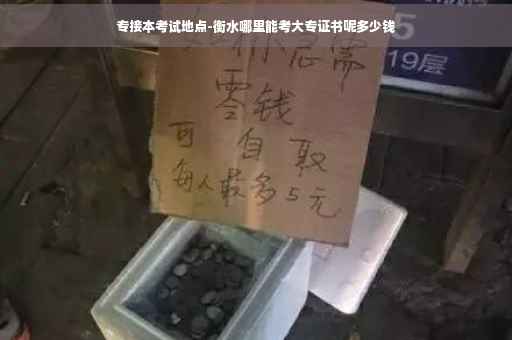 专接本考试地点-衡水哪里能考大专证书呢多少钱
你急需
零钱
可 自 取
每人最多5元
5
19层